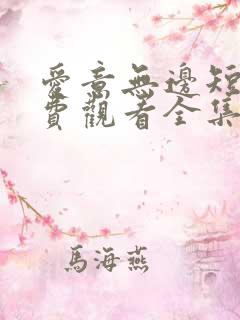 愛意無邊短
費觀看全集
馬海燕